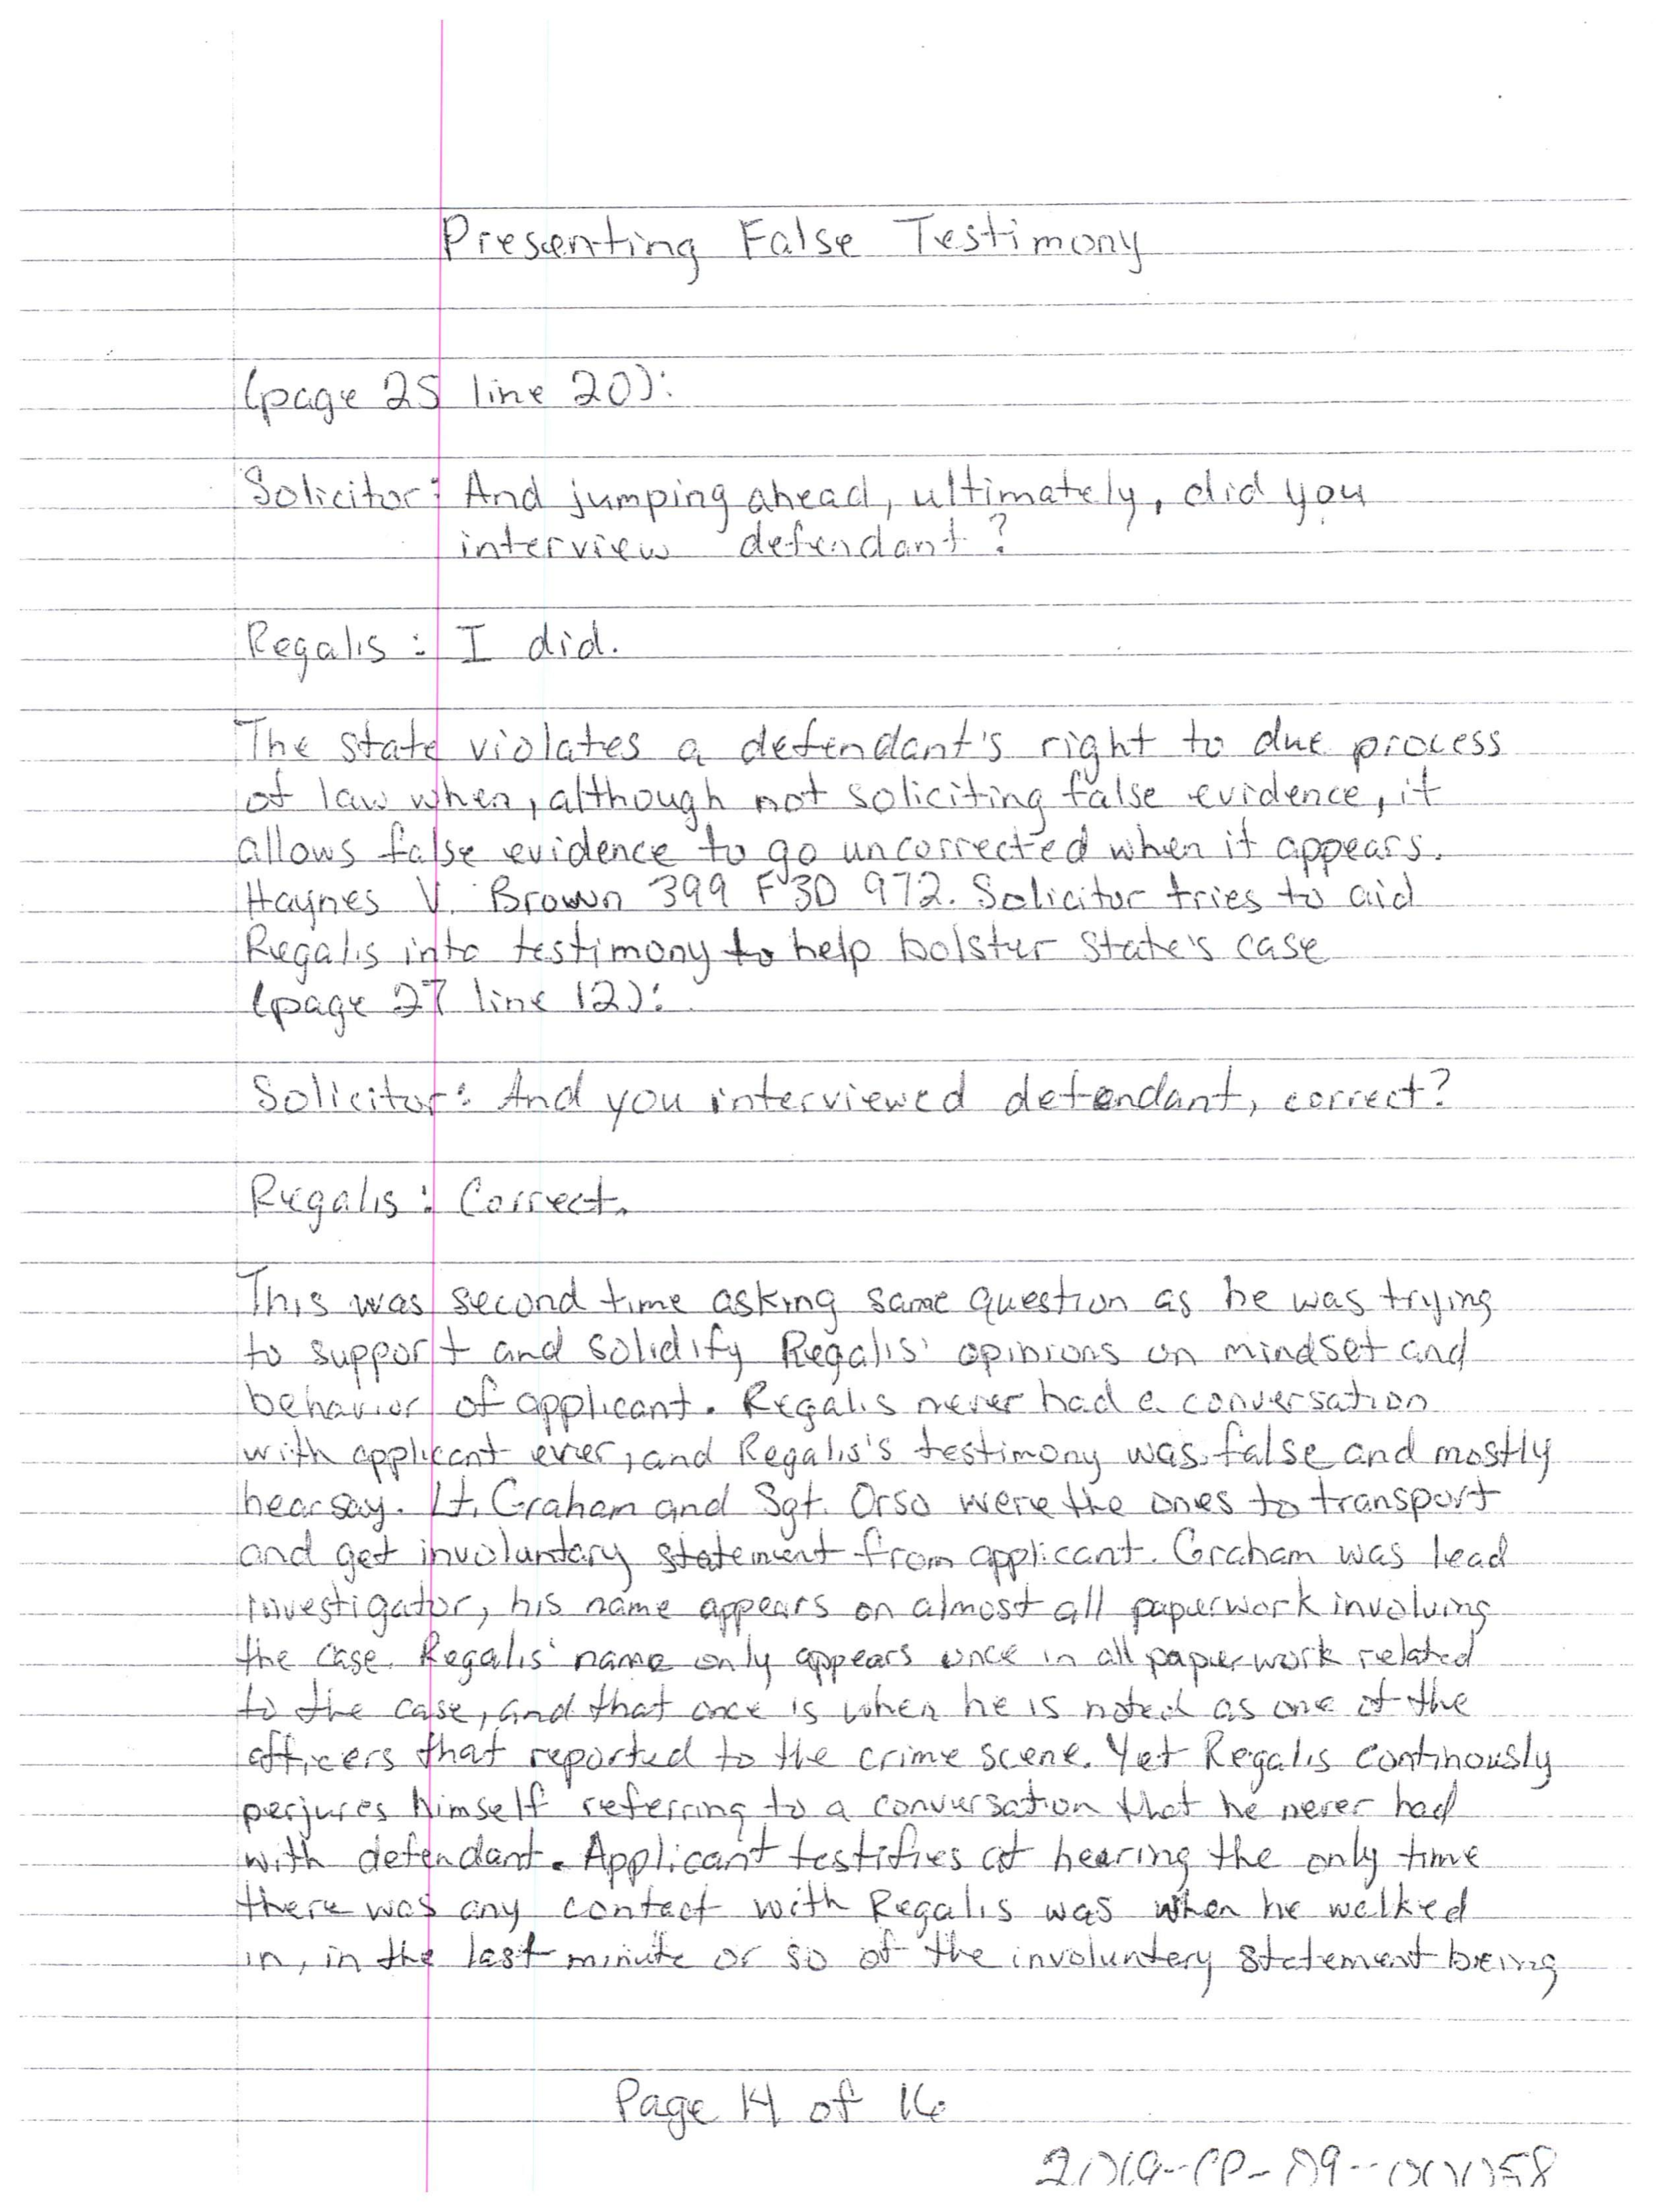 Presenting False Testimony
(page 25 line 20):
Solicitor: And jumping ahead, ultimately, did you
interview defendant?
Regalis: I did.
The State violates a defendant's right to due process
of law when, although not soliciting false evidence, it
allows false evidence to go uncorrected when it appears.
Haynes V. Brown 399 F3D 972. Solicitor tries to aid
Regalis into testimony to help bolster State's case
(page 27 line 12):
Solicitor: And you interviewed defendant, correct?
Regalis: Correct.
This was second time asking same question as he was trying
to support and solidify Regalis' opinions on mindset and
behavior of applicant. Regalis never had a conversation
with applicant ever, and Regalis's testimony was false and mostly
hearsay. Lt. Graham and Sgt. Orso were the ones to transport
and get involuntary statement from applicant. Graham was lead
investigator, his name appears on almost all paperwork involving
the case. Regalis' name only appears once in all paperwork related
to the case, and that once is when he is noted as one of the
officers that reported to the crime scene. Yet Regalis continously
perjures himself referring to a conversation that he never had
with defendant. Applicant testifies at hearing the only time
there was any contact with Regalis was when he walked
in, in the last minute or so of the involuntery statement being
Page 14 of 16